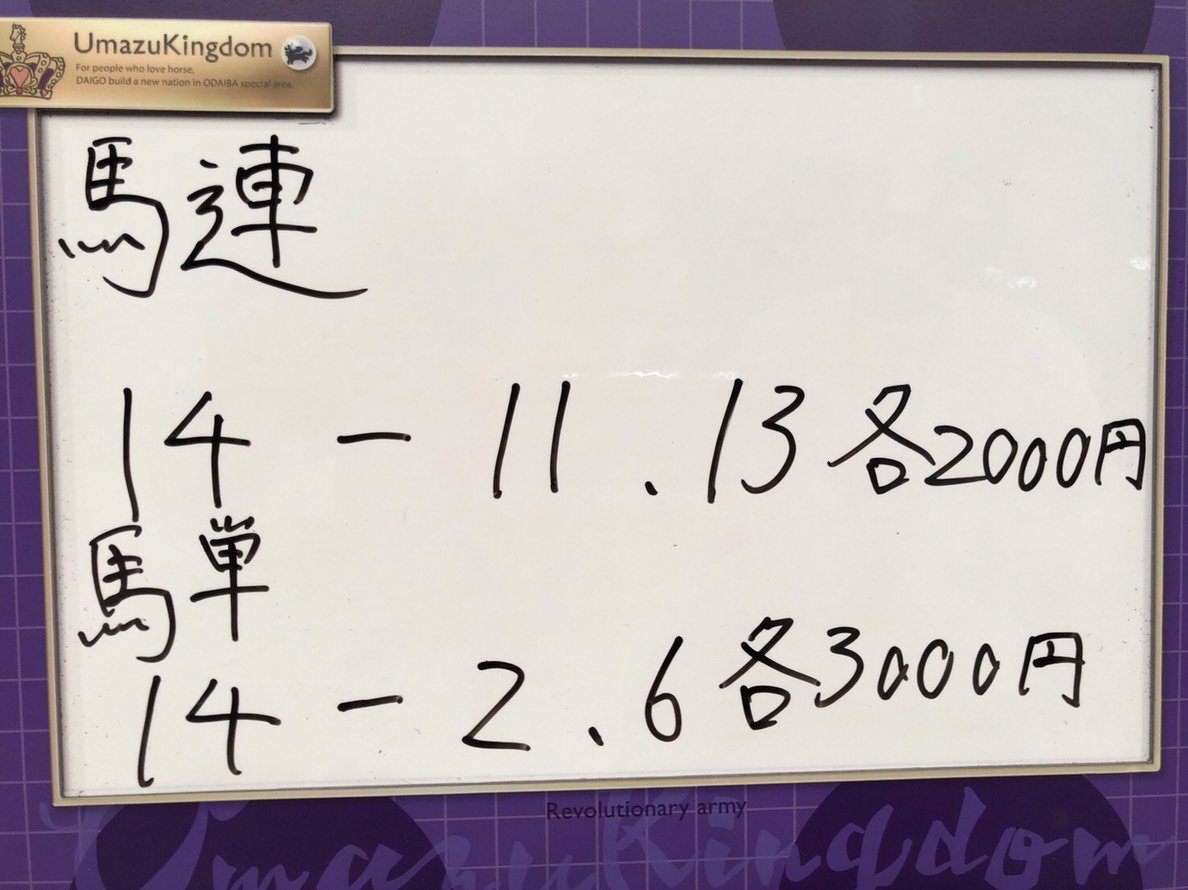 UmazuKingdom
For people who love horse,
DAIGO build a new nation in ODAIBA special area.
馬連
14 - 11 . 13 各2000円
馬単
14 - 2 . 6 各3000円
Revolutionary army
UmazuKingdom